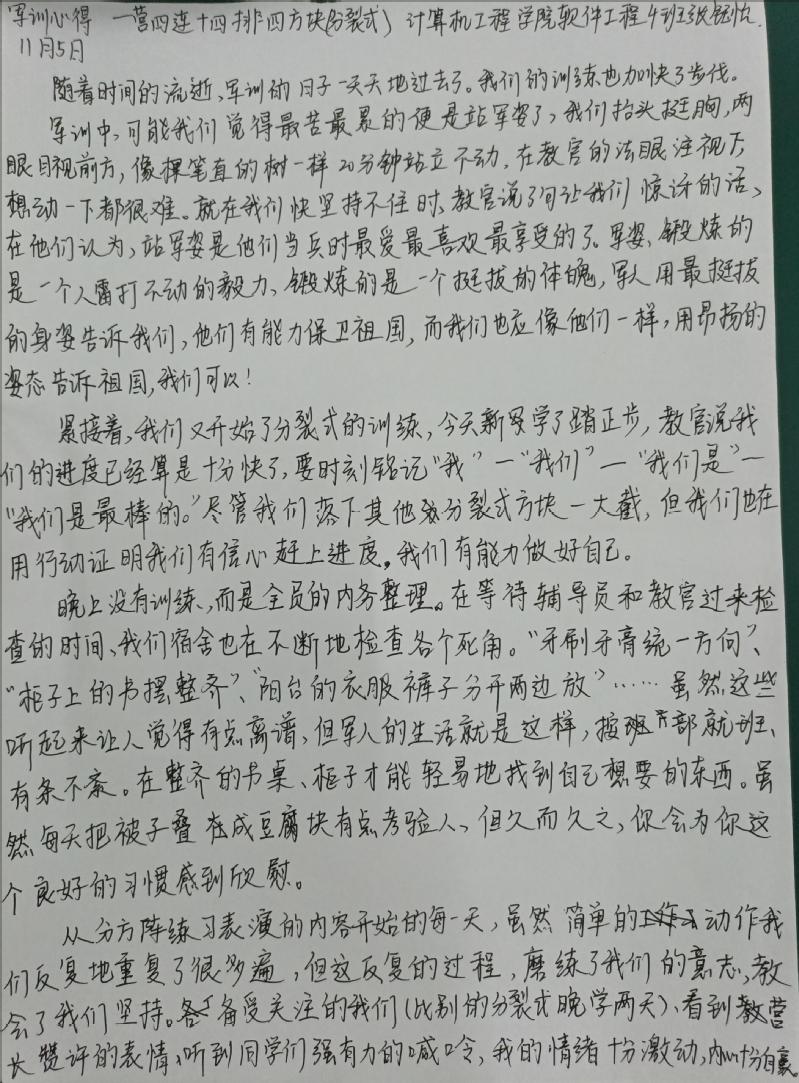 军训心得 一营四连十四排四方块(分裂式) 计算机工程学院软件工程4班张钰怡
11月5日
随着时间的流逝、军训的日子一天天地过去了。我们的训练也加快了步伐。
军训中,可能我们觉得最苦最累的便是站军姿了,我们抬头挺胸,两
眼目视前方,像棵笔直的树一样20分钟站立不动,在教官的法眼注视下,
想动一下都很难。就在我们快坚持不住时、教官说了句让我们惊讶的话、
在他们认为,站军姿是他们当兵时最爱最喜欢最享受的了。军姿、锻炼的
是一个人雷打不动的毅力、锻炼的是一个挺拔的体魄,军人用最挺拔
的身姿告诉我们,他们有能力保卫祖国,而我们也应像他们一样,用昂扬的
姿态告诉祖国,我们可以!
紧接着,我们又开始了分裂式的训练,今天新学了踏正步,教官说我
们的进度已经算是十分快了,要时刻铭记“我”一“我们”一“我们是”一
“我们是最棒的。”尽管我们落下其他分裂式方块一大截,但我们也在
用行动证明我们有信心赶上进度。我们有能力做好自己。
晚上没有训练、而是全员的内务整理。在等待辅导员和教官过来检
查的时间、我们宿舍也在不断地检查各个死角。“牙刷牙膏统一方向”、
“柜子上的书摆整齐”、“阳台的衣服裤子分开两边放”……虽然这些
听起来让人觉得有点离谱,但军人的生活就是这样,按部就班、
有条不紊。在整齐的书桌、柜子才能轻易地找到自己想要的东西。虽
然每天把被子叠在成豆腐块有点考验人、但久而久之,你会为你这
个良好的习惯感到欣慰。
从分方阵练习表演的内容开始的每一天,虽然简单的动作我
们反复地重复了很多遍,但这反复的过程,磨练了我们的意志,教
会了我们坚持。备受关注的我们(比别的分裂式晚学两天)、看到教营
长赞许的表情、听到同学们强有力的喊口令,我的情绪十分激动,内心十分自豪。